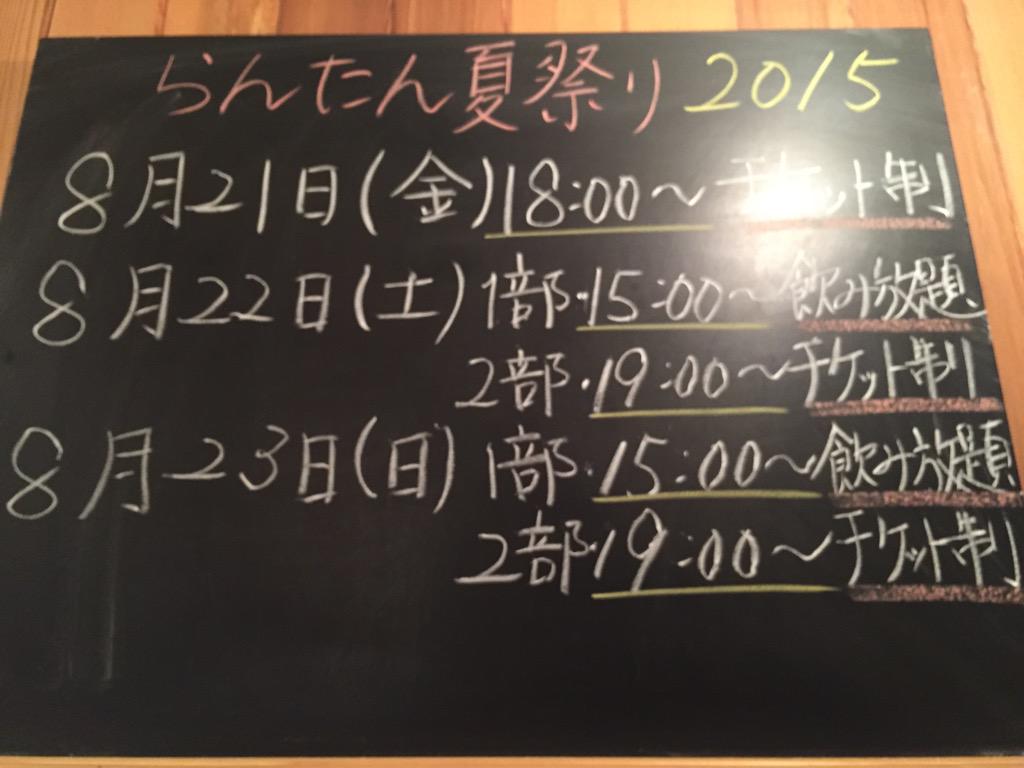 らんたん夏祭り 2015
8月21日(金) 18:00〜 チケット制
8月22日(土) 1部・15:00〜 飲み放題
2部・19:00〜 チケット制
8月23日(日) 1部・15:00〜 飲み放題
2部・19:00〜 チケット制